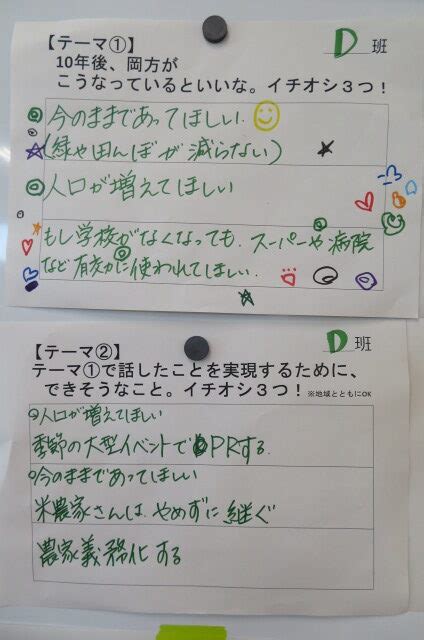 【テーマ①】
D班
10年後、岡方が
こうなっているといいな。イチオシ３つ！
◎今のままであってほしい.
(緑や田んぼが減らない)
◎人口が増えてほしい
もし学校がなくなっても、スーパーや病院
など有効に使われてほしい.
D班
【テーマ②】
テーマ①で話したことを実現するために、
できそうなこと。イチオシ３つ！※地域とともにOK
○人口が増えてほしい
季節の大型イベントでPRする.
○今のままであってほしい
米農家さんは、やめずに継ぐ
農家義務化する